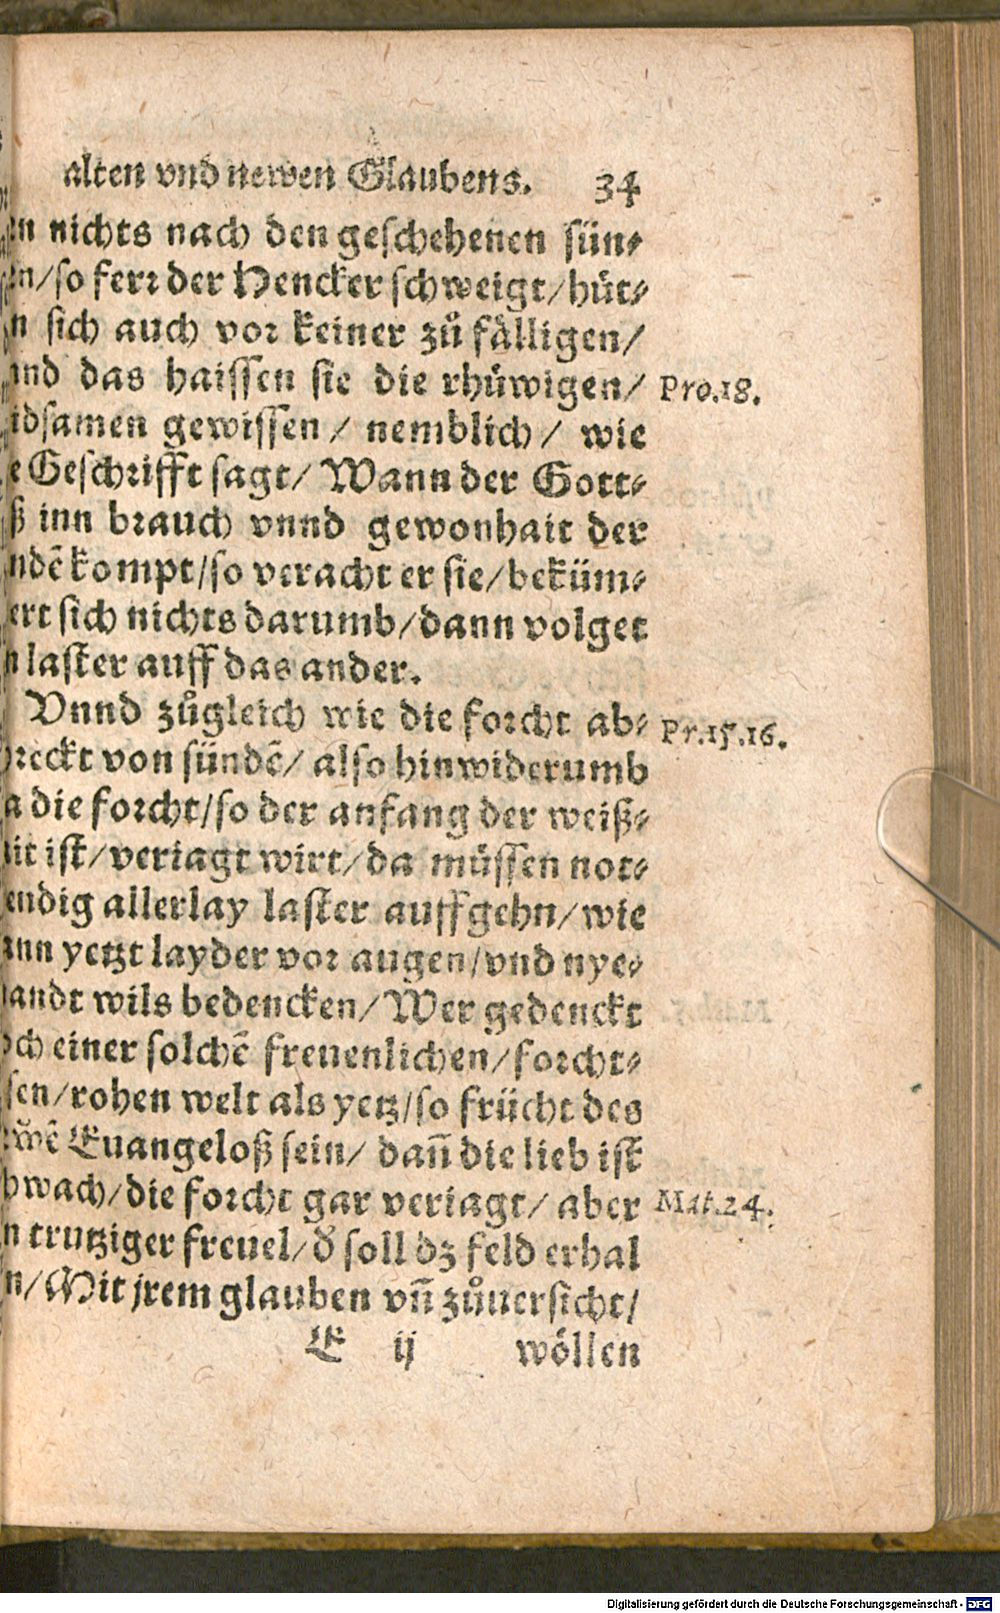 alten vnd newen Glaubens. 34
nichts nach den geschehenen sün⸗
/so ferr der Hencker schweigt/hüt⸗
sich auch vor keiner zů fälligen/
das haissen sie die rhůwigen/ Pro.18.
gewissen/ nemblich/ wie
Geschrifft sagt/ Wann der Gott⸗
inn brauch vnnd gewonhait der
kompt/so veracht er sie/beküm⸗
ert sich nichts darumb/dann volget
laster auff das ander.
Vnnd zůgleich wie die forcht ab⸗ Pr.15.16.
reckt von sündẽ/ also hinwiderumb
a die forcht/so der anfang der weiß⸗
it ist/veriagt wirt/da müssen not⸗
endig allerlay laster auffgehn/wie
ann yetzt layder vor augen/vnd nye⸗
andt wils bedencken/Wer gedenckt
ch einer solchẽ freuenlichen/forcht⸗
sen/rohen welt als yetz/so frücht des
Euangeloß sein/ dañ die lieb ist
wach/die forcht gar veriagt/ aber Mat.24.
n trutziger freuel/d̕ soll dz feld erhal
n/Mit jrem glauben vñ zůuersicht/
E ij wöllen
Digitalisierung gefördert durch die Deutsche Forschungsgemeinschaft - DFG